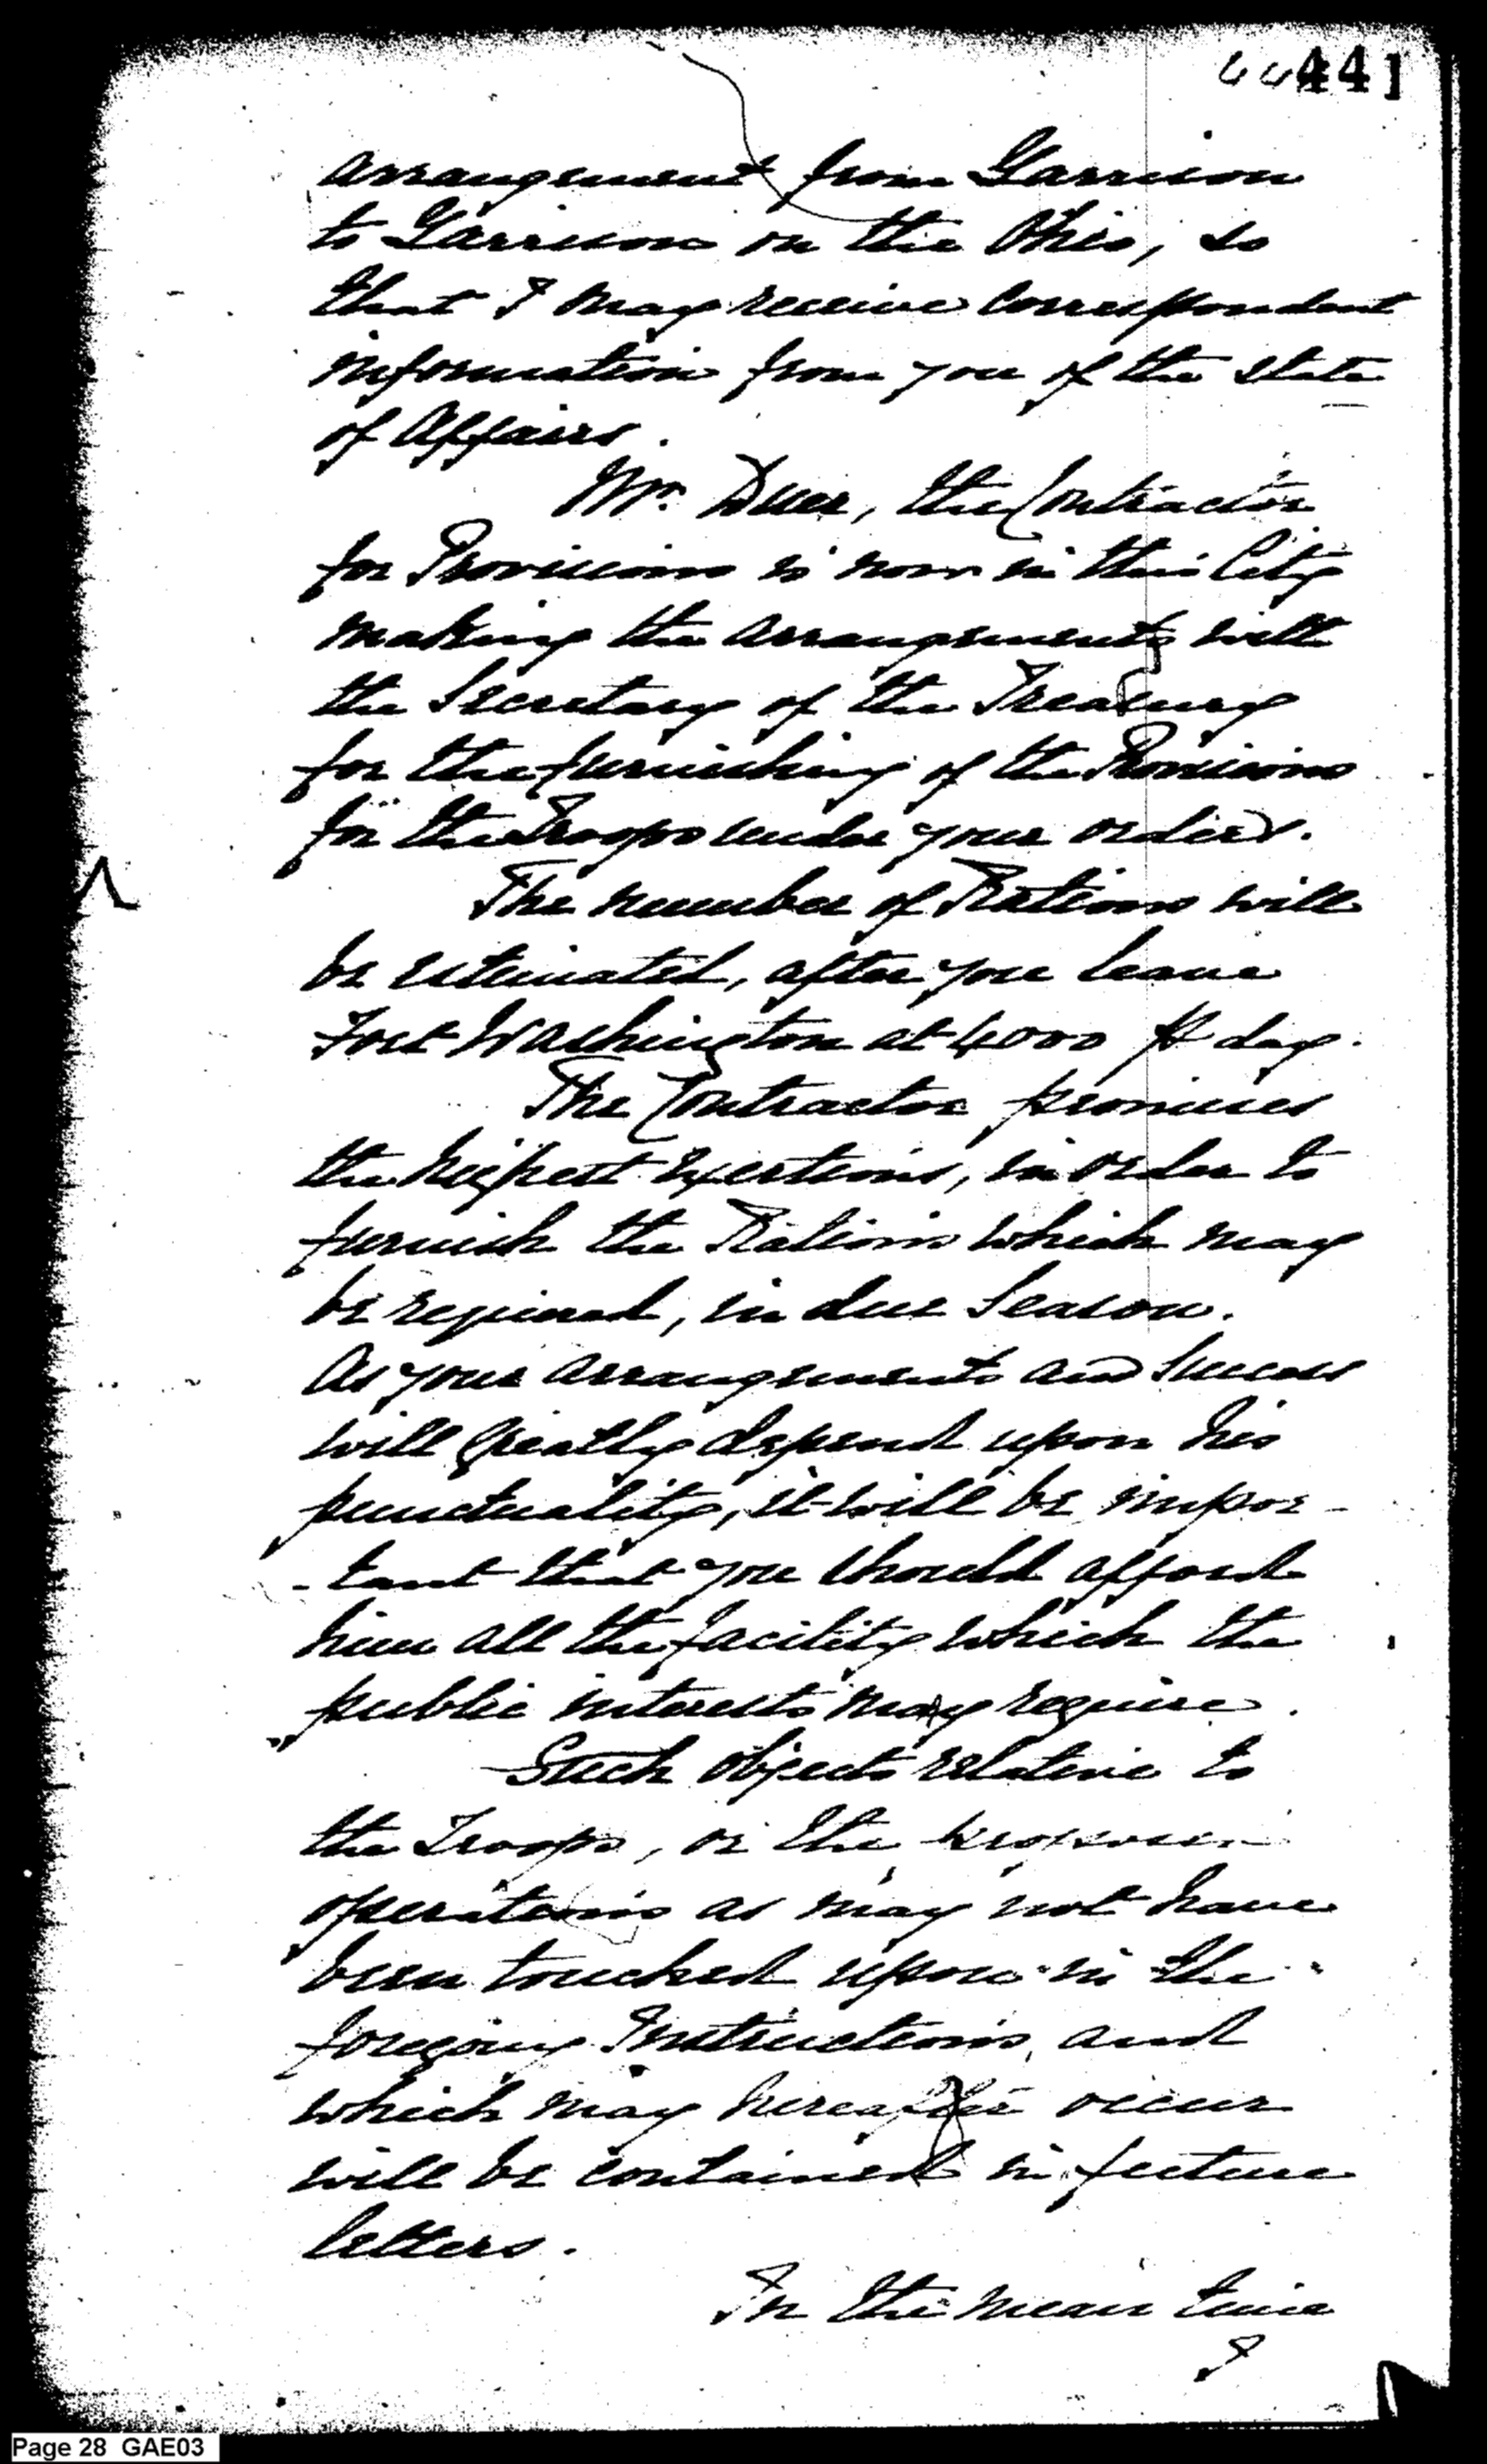 441
arrangement from Garrison
to Garrison on the Ohio, so
that I may receive correspondent
information from you of the state
of Affairs.
Mr. Duer, the Contractor
for Provisions is now in this City
making the arrangements with
the Secretary of the Treasury
for the furnishing of the Provisions
for the Troops under your orders.
The number of Rations will
be estimated, after you leave
Fort Washington at 4000 ⅌ day.
The Contractor promises
the highest exertions, in order to
furnish the Rations which may
be required, in due Season.
As your arrangements and Success
will greatly depend upon his
punctuality, it will be impor-
-tant that you should afford
him all the facility which the
public interests may require.
Such objects relative to
the Troops, or the proposed
operations as may not have
been touched upon in the
foregoing Instructions, and
which may hereafter occur
will be contained in future
letters.
In the mean time
I
Page 28 GAE03